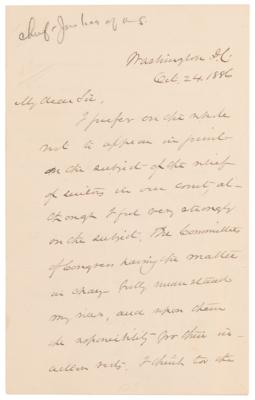 Chief Justice of U.S.
Washington D.C.
Oct. 24, 1886
My dear Sir,
I prefer on the whole
not to appear in print
on the subject of the relief
of suitors in our court, al-
though I feel very strongly
on the subject. The Committees
of Congress having the matter
in charge fully understand
my views, and upon them
the responsibility for their in-
action rests. I think too the